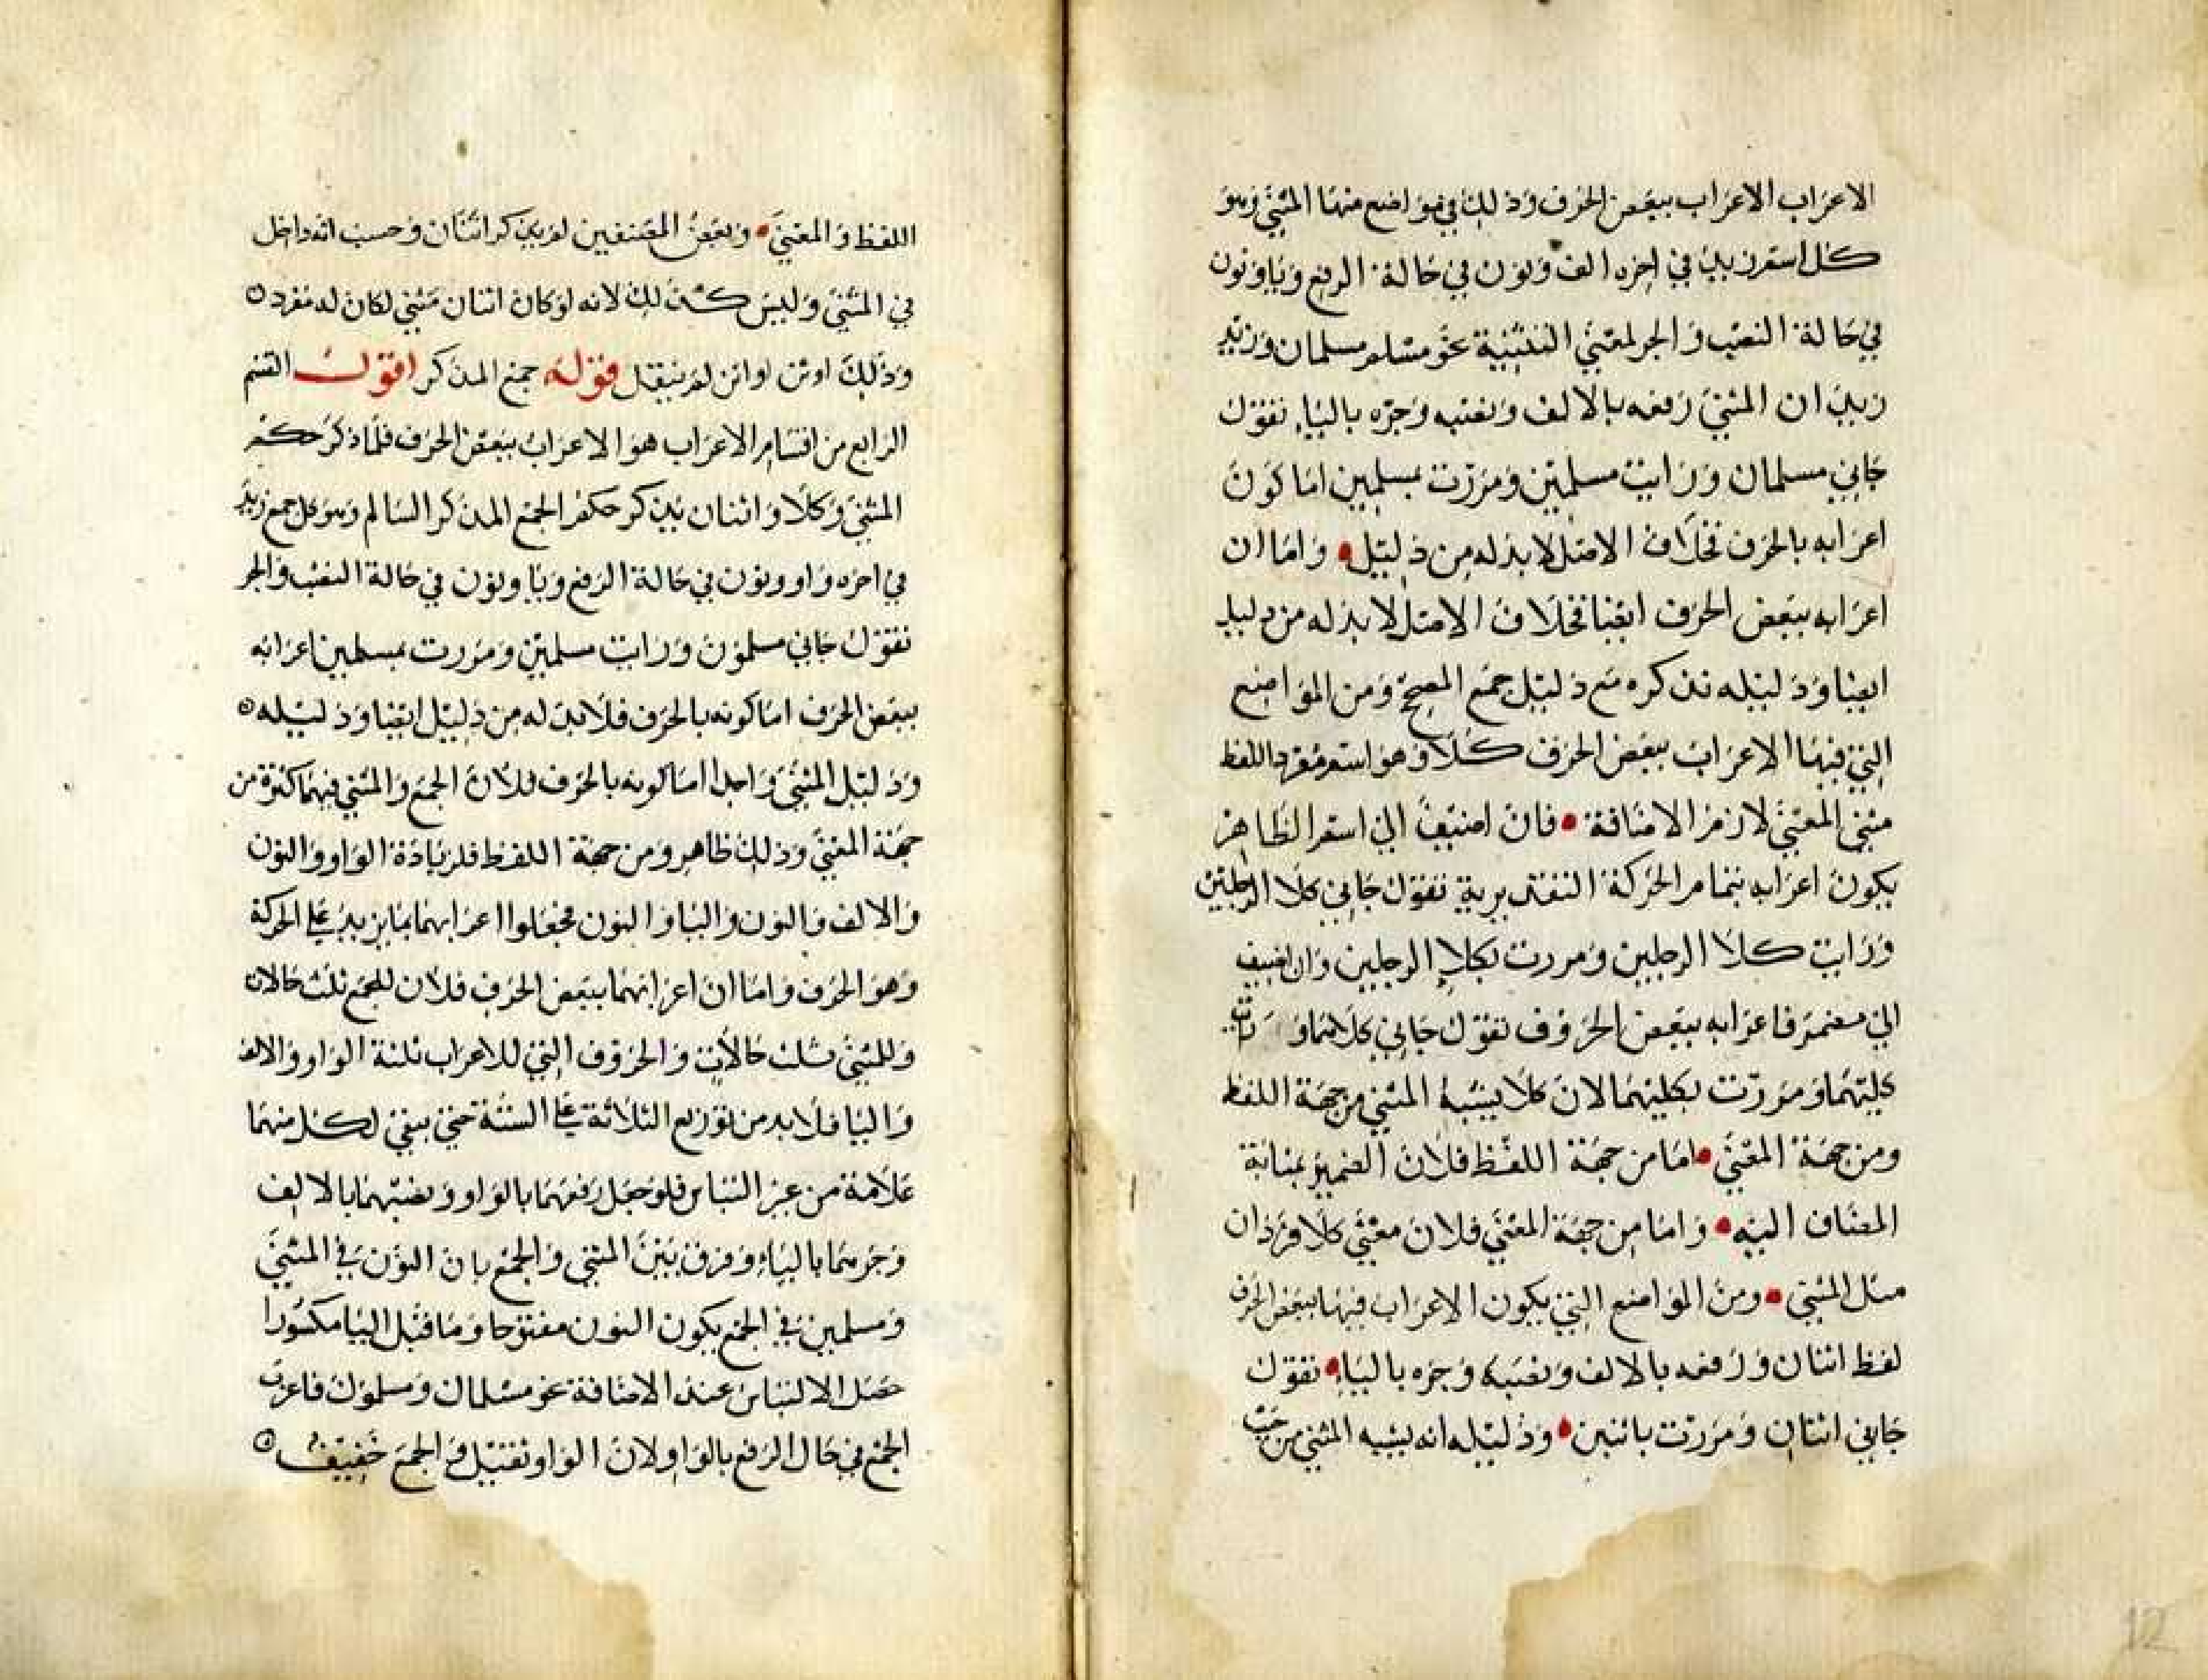 الاعراب الاعراب ببعض الحرف وذلك في مواضع منها المثنى وهو
كل اسم زيد في اخره الف ونون في حالة الرفع ويا ونون
في حالة النصب والجر لمعنى التثنية نحو مسلم مسلمان وزيد
زيدان المثنى رفعه بالالف ونصبه وجره بالياء تقول
جاني مسلمان ورايت مسلمين ومررت بمسلمين اما كون
اعرابه بالحرف فخلاف الاصل لا بد له من دليل واما ان
اعرابه ببعض الحرف ايضا فخلاف الاصل لا بد له من دليل
ايضا ودليله نذكره مع دليل جمع الصحيح ومن المواضع
التي فيها الاعراب ببعض الحرف كلا وهو اسم مفرد اللفظ
مثنى المعنى لازم الاضافة فان اضيف الى اسم الظاهر
يكون اعرابه بتمام الحركة التقديرية تقول جاني كلا الرجلين
ورايت كلا الرجلين ومررت بكلا الرجلين وان اضيف
الى مضمر فاعرابه ببعض الحروف تقول جاني كلاهما و رايت
كليهما ومررت بكليهما لان كلا يشبه المثنى من جهة اللفظ
ومن جهة المعنى اما من جهة اللفظ فلان الضمير بمثابة
المضاف اليه واما من جهة المعنى فلان معنى كلا فردان
مثل المثنى ومن المواضع التي يكون الاعراب فيها ببعض الحرف
لفظ اثنان ورفعه بالالف ونصبه وجره بالياء تقول
جاني اثنان ومررت باثنين ودليله انه يشبه المثنى من حيث
اللفظ والمعنى وبعض المصنفين لم يذكر اثنان وحسب انه داخل
في المثنى وليس كذلك لانه لو كان اثنان مثنى لكان له مفرد
وذلك اوثن او اثن لم ينقل قوله جمع المذكر اقول القسم
الرابع من اقسام الاعراب هو الاعراب ببعض الحرف فلما ذكر حكم
المثنى وكلا واثنان يذكر حكم الجمع المذكر السالم وهو كل جمع زيد
في اخره واو ونون في حالة الرفع ويا ونون في حالة النصب والجر
تقول جاني مسلمون ورايت مسلمين ومررت بمسلمين اعرابه
ببعض الحرف اما كونه بالحرف فلا بد له من دليل ايضا ودليله
ودليل المثنى واحد اما كونه بالحرف فلان الجمع والمثنى فيهما كثرة من
جهة المعنى وذلك ظاهر ومن جهة اللفظ فلزيادة الواو والنون
والالف والنون واليا والنون فجعلوا اعرابهما بما يزيد على الحركة
وهو الحرف واما ان اعرابهما ببعض الحرف فلان للجمع ثلث حالات
وللمثنى ثلث حالات والحروف التي للاعراب ثلثة الواو والالف
واليا فلا بد من توزيع الثلاثة على الستة حتى يبقى لكل منهما
علامة من غير التباس فلو جعل رفعهما بالواو ونصبهما بالالف
وجرهما بالياء وفرق بين المثنى والجمع بان النون في المثنى
ومسلمين في الجمع يكون النون مفتوحا وما قبل اليا مكسورا
حصل الالتباس عند الاضافة نحو مسلمان ومسلمون فاعرب
الجمع في حال الرفع بالواو لان الواو ثقيل و الجمع خفيف